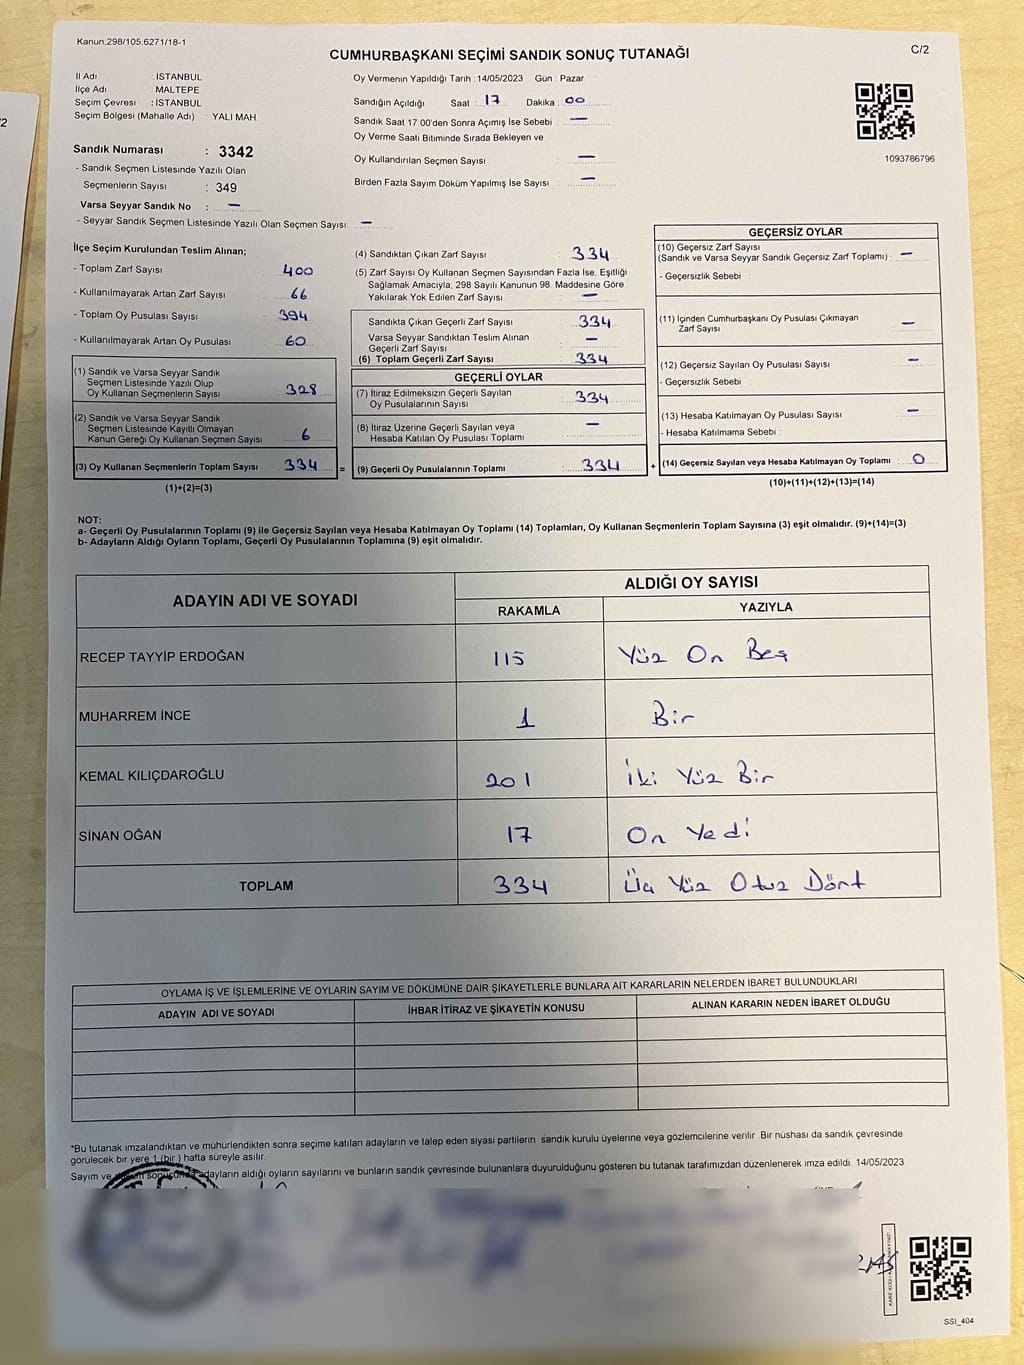 Kanun,298/105,6271/18-1
C/2
CUMHURBAŞKANI SEÇİMİ SANDIK SONUÇ TUTANAĞI
İl Adı : İSTANBUL
İlçe Adı : MALTEPE
Seçim Çevresi : İSTANBUL
Seçim Bölgesi (Mahalle Adı) : YALI MAH.
Sandık Numarası : 3342
- Sandık Seçmen Listesinde Yazılı Olan
Seçmenlerin Sayısı : 349
Varsa Seyyar Sandık No : —
- Seyyar Sandık Seçmen Listesinde Yazılı Olan Seçmen Sayısı: —
Oy Vermenin Yapıldığı Tarih : 14/05/2023 Gün : Pazar
Sandığın Açıldığı Saat : 17 Dakika : 00
Sandık Saat 17:00'den Sonra Açımış İse Sebebi : —
Oy Verme Saati Bitiminde Sırada Bekleyen ve
Oy Kullandırılan Seçmen Sayısı : —
Birden Fazla Sayım Döküm Yapılmış İse Sayısı : —
1093766796
İlçe Seçim Kurulundan Teslim Alınan;
- Toplam Zarf Sayısı : 400
- Kullanılmayarak Artan Zarf Sayısı : 66
- Toplam Oy Pusulası Sayısı : 394
- Kullanılmayarak Artan Oy Pusulası : 60
(1) Sandık ve Varsa Seyyar Sandık
Seçmen Listesinde Yazılı Olup
Oy Kullanan Seçmenlerin Sayısı : 328
(2) Sandık ve Varsa Seyyar Sandık
Seçmen Listesinde Kayıtlı Olmayan
Kanun Gereği Oy Kullanan Seçmen Sayısı : 6
(3) Oy Kullanan Seçmenlerin Toplam Sayısı : 334 =
(1)+(2)=(3)
(4) Sandıktan Çıkan Zarf Sayısı : 334
(5) Zarf Sayısı Oy Kullanan Seçmen Sayısından Fazla İse, Eşitliği
Sağlamak Amacıyla, 298 Sayılı Kanunun 98. Maddesine Göre
Yakılarak Yok Edilen Zarf Sayısı : —
Sandıkta Çıkan Geçerli Zarf Sayısı : 334
Varsa Seyyar Sandıktan Teslim Alınan
Geçerli Zarf Sayısı : —
(6) Toplam Geçerli Zarf Sayısı : 334
GEÇERLİ OYLAR
(7) İtiraz Edilmeksizin Geçerli Sayılan
Oy Pusulalarının Sayısı : 334
(8) İtiraz Üzerine Geçerli Sayılan veya
Hesaba Katılan Oy Pusulası Toplamı : —
(9) Geçerli Oy Pusulalarının Toplamı : 334 +
GEÇERSİZ OYLAR
(10) Geçersiz Zarf Sayısı
(Sandık ve Varsa Seyyar Sandık Geçersiz Zarf Toplamı) : —
- Geçersizlik Sebebi :
(11) İçinden Cumhurbaşkanı Oy Pusulası Çıkmayan
Zarf Sayısı : —
(12) Geçersiz Sayılan Oy Pusulası Sayısı : —
- Geçersizlik Sebebi :
(13) Hesaba Katılmayan Oy Pusulası Sayısı : —
- Hesaba Katılmama Sebebi :
(14) Geçersiz Sayılan veya Hesaba Katılmayan Oy Toplamı : 0
(10)+(11)+(12)+(13)=(14)
NOT:
a- Geçerli Oy Pusulalarının Toplamı (9) ile Geçersiz Sayılan veya Hesaba Katılmayan Oy Toplamı (14) Toplamları, Oy Kullanan Seçmenlerin Toplam Sayısına (3) eşit olmalıdır. (9)+(14)=(3)
b- Adayların Aldığı Oyların Toplamı, Geçerli Oy Pusulalarının Toplamına (9) eşit olmalıdır.
ADAYIN ADI VE SOYADI
ALDIĞI OY SAYISI
RAKAMLA YAZIYLA
RECEP TAYYİP ERDOĞAN 115 Yüz On Beş
MUHARREM İNCE 1 Bir
KEMAL KILIÇDAROĞLU 201 İki Yüz Bir
SİNAN OĞAN 17 On Yedi
TOPLAM 334 Üç Yüz Otuz Dört
OYLAMA İŞ VE İŞLEMLERİNE VE OYLARIN SAYIM VE DÖKÜMÜNE DAİR ŞİKAYETLERLE BUNLARA AİT KARARLARIN NELERDEN İBARET BULUNDUKLARI
ADAYIN ADI VE SOYADI İHBAR İTİRAZ VE ŞİKAYETİN KONUSU ALINAN KARARIN NEDEN İBARET OLDUĞU
*Bu tutanak imzalandıktan ve mühürlendikten sonra seçime katılan adayların ve talep eden siyasi partilerin sandık kurulu üyelerine veya gözlemcilerine verilir. Bir nüshası da sandık çevresinde
görülecek bir yere 1 (bir) hafta süreyle asılır.
Sayım ve döküm sonucunda adayların aldığı oyların sayılarını ve bunların sandık çevresinde bulunanlara duyurulduğunu gösteren bu tutanak tarafımızdan düzenlenerek imza edildi. 14/05/2023
SSI_404